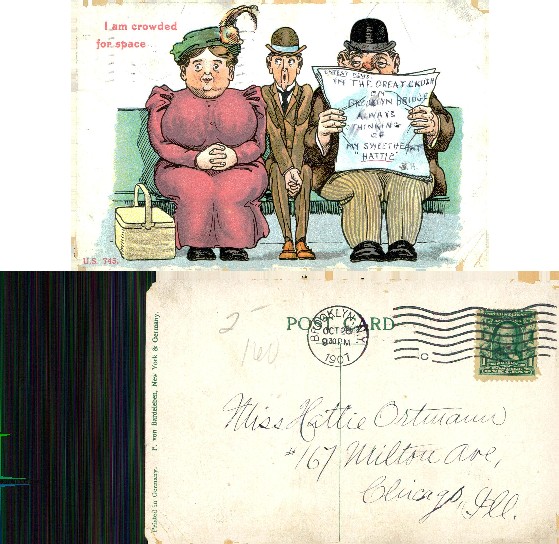 I am crowded
for space
LATEST NEWS
IN THE GREAT CRUSH
ON
BROOKLYN BRIDGE
ALWAYS
THINKING
OF
MY SWEETHEART
"HATTIE"
U.S. 745.
Printed in Germany. P. von Bardeleben, New York & Germany.
POST CARD
BROOKLYN, N.Y.
OCT 28
9 30 PM
1907
Miss Hattie Ortmann
#167 Milton Ave,
Chicago, Ill.